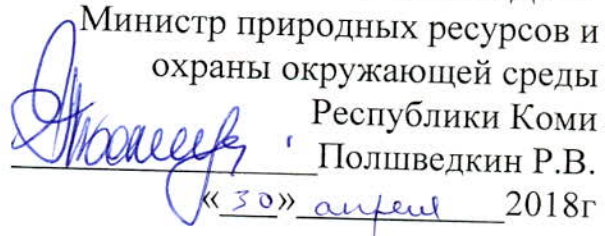 Министр природных ресурсов и
охраны окружающей среды
Республики Коми
Полшведкин Р.В.
«30» апреля 2018г